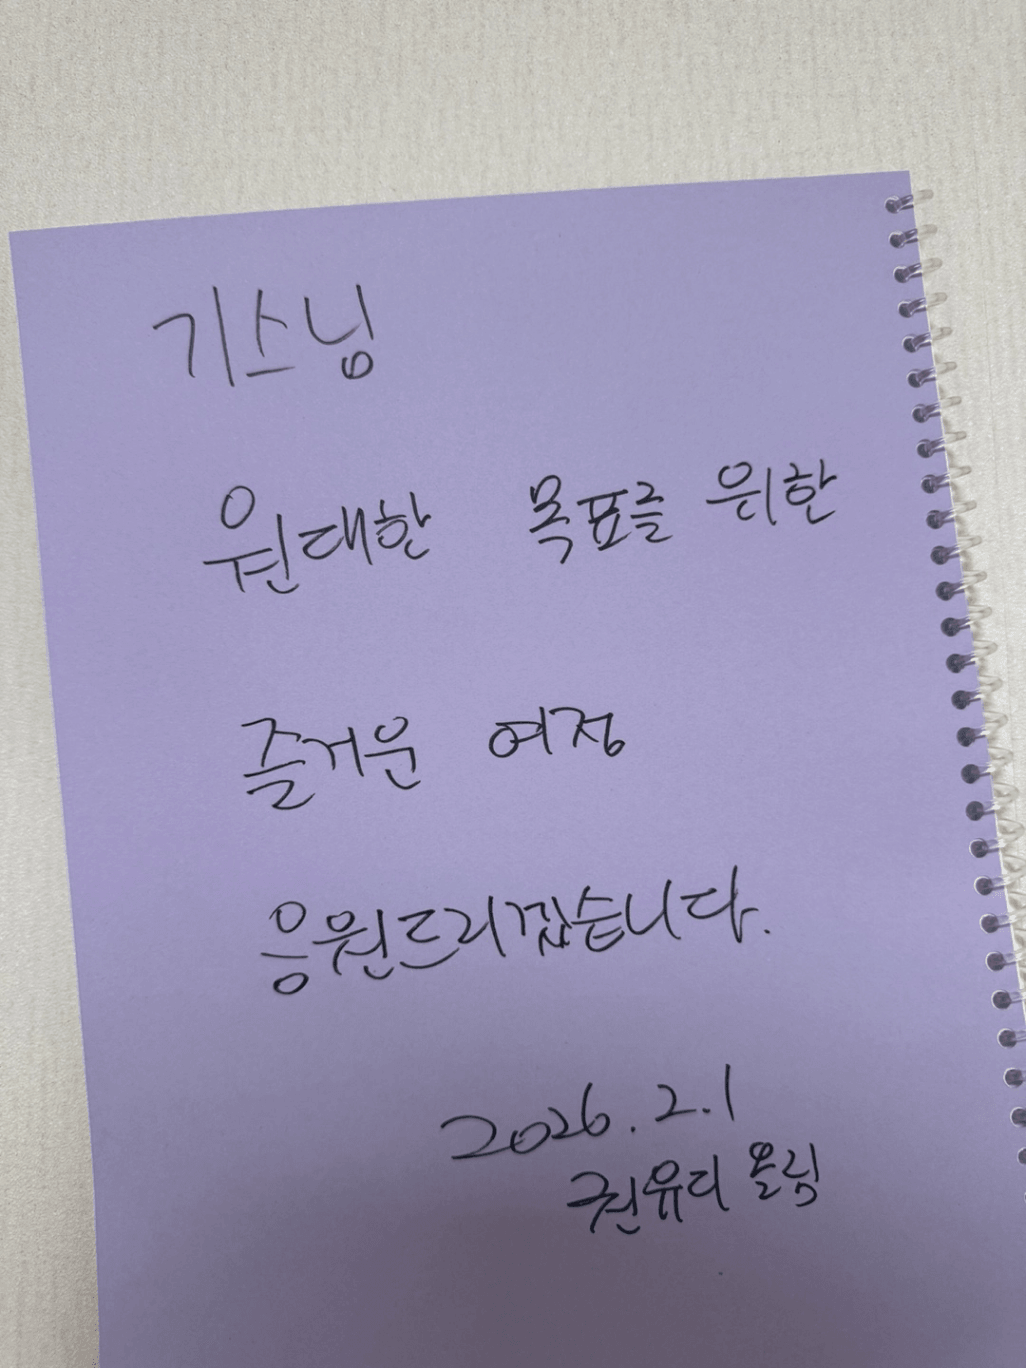 기스닝
원대한 목표를 위한
즐거운 여정
응원드리겠습니다.
2026.2.1
권유디 올림